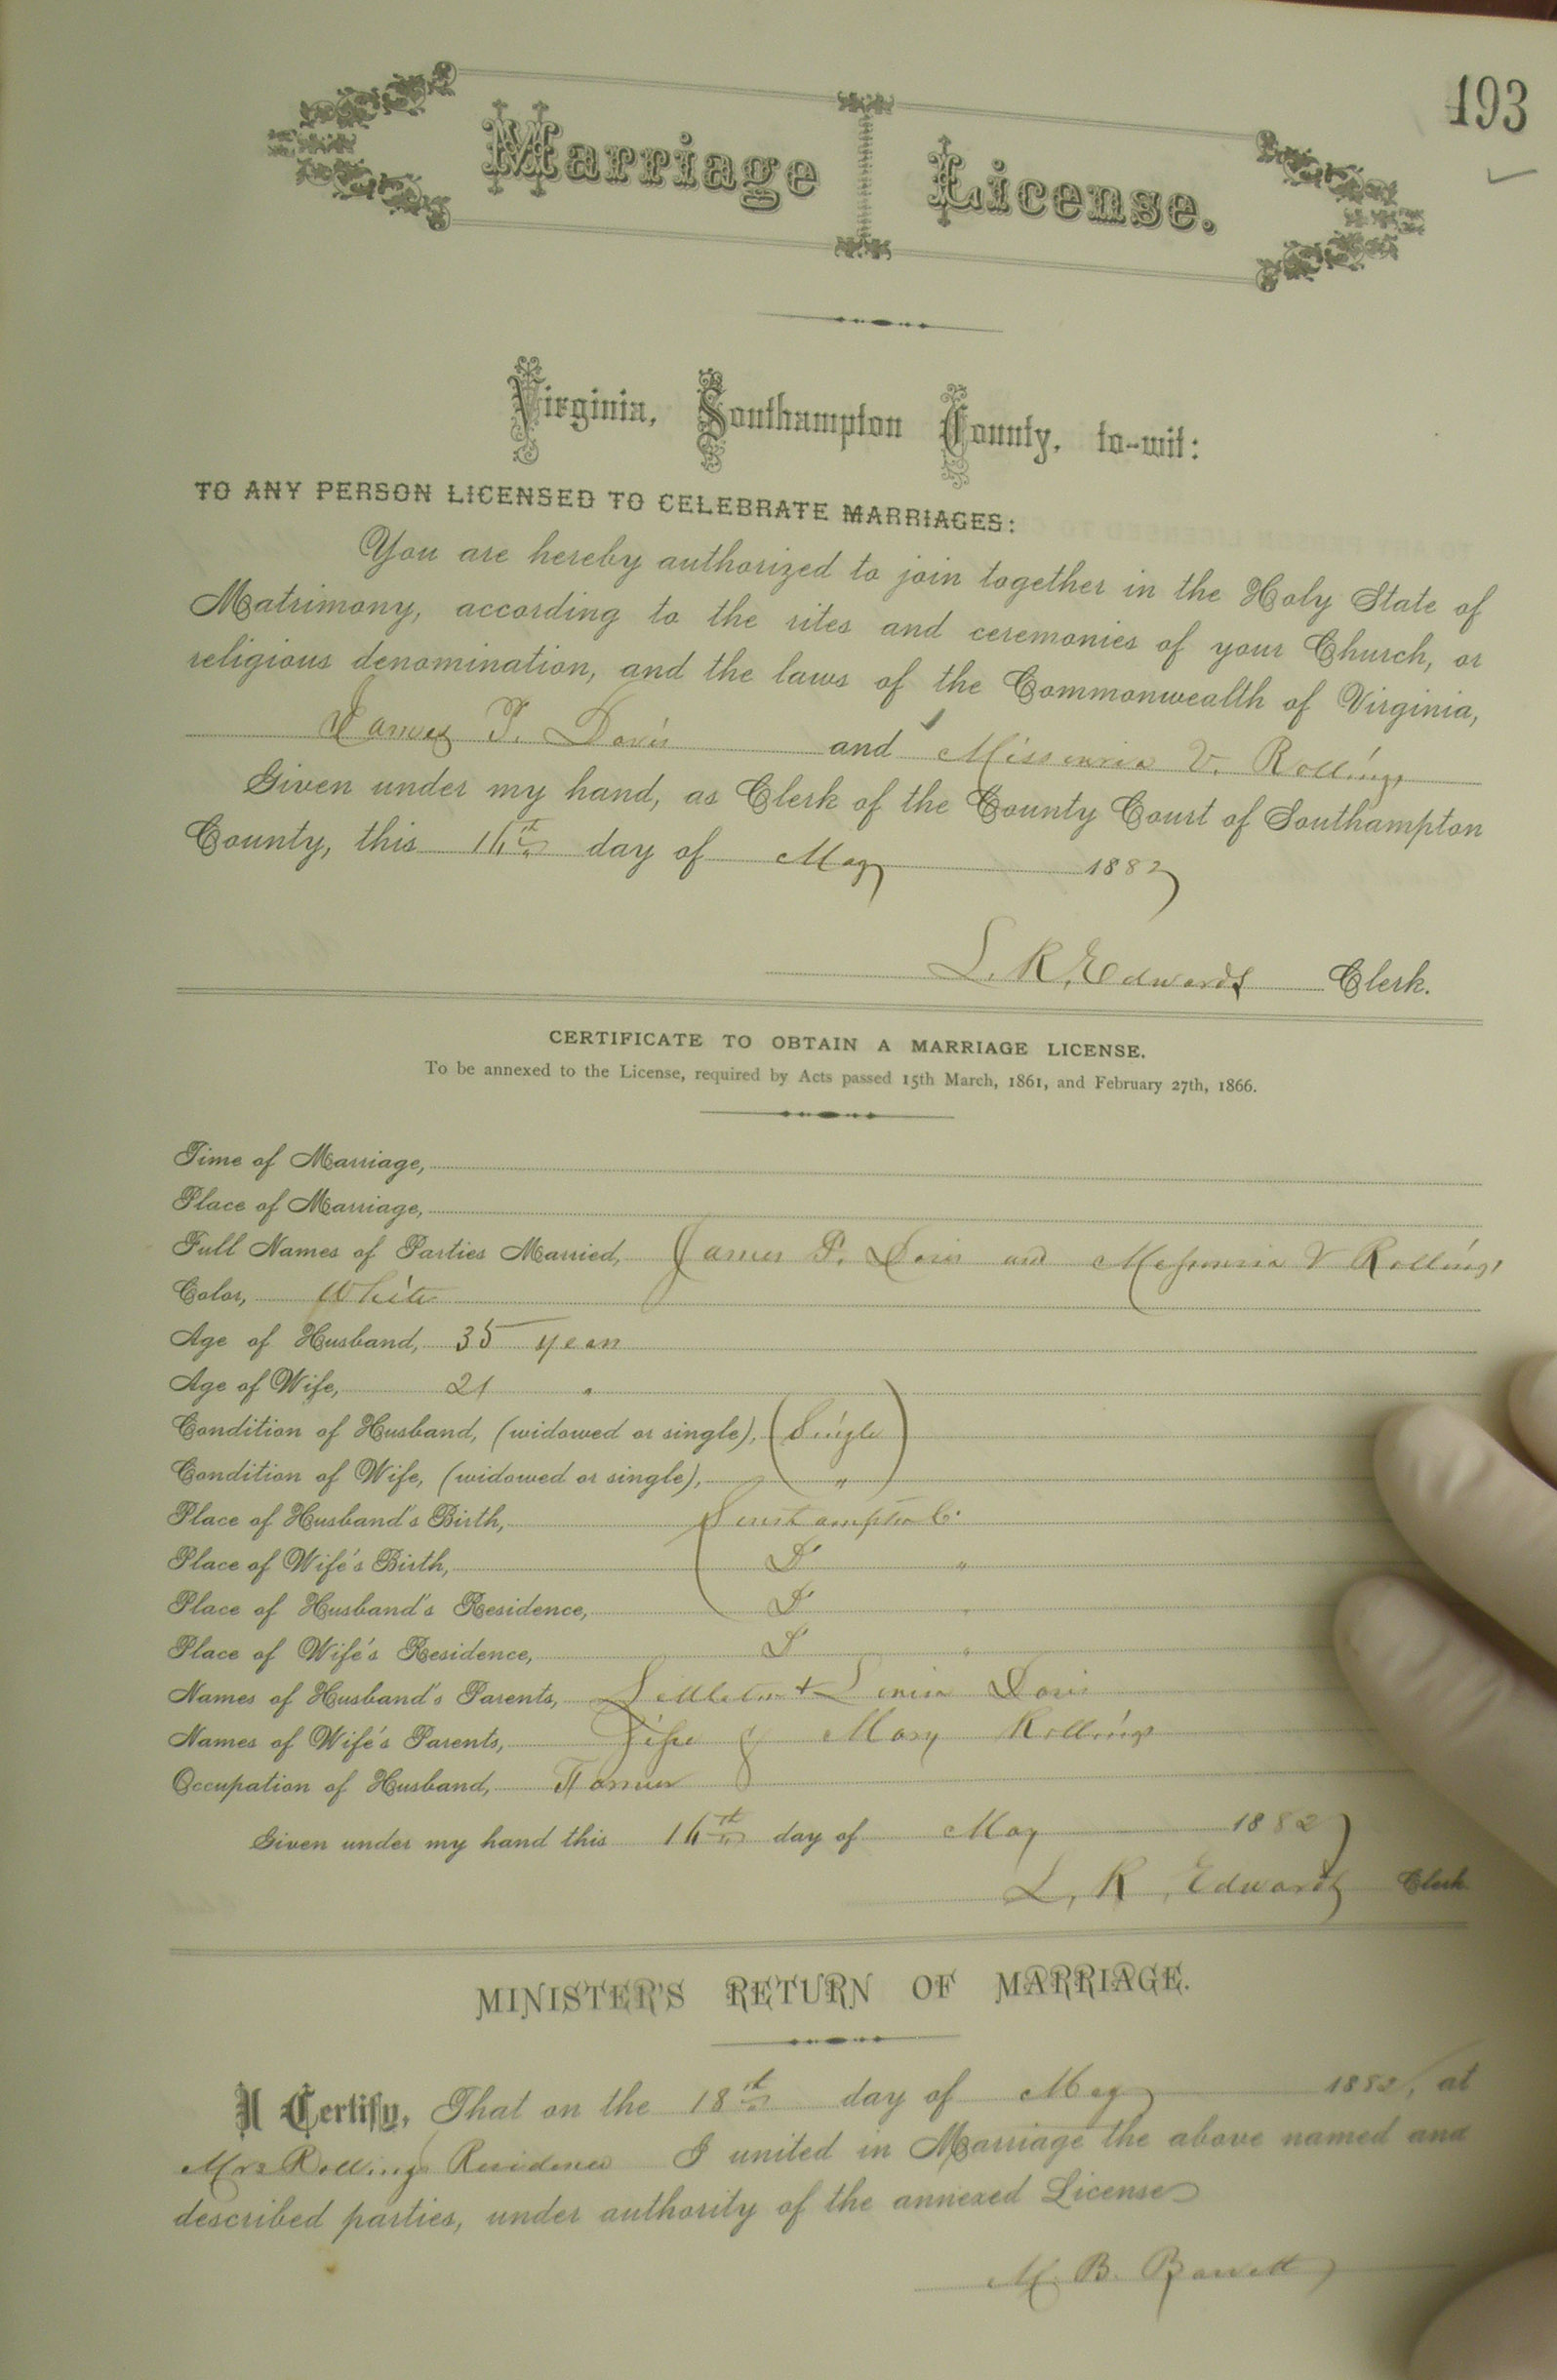 193
Marriage License.
Virginia, Southampton County, to-wit:
TO ANY PERSON LICENSED TO CELEBRATE MARRIAGES:
You are hereby authorized to join together in the Holy State of
Matrimony, according to the rites and ceremonies of your Church, or
religious denomination, and the laws of the Commonwealth of Virginia,
James P. Davis and Missouria V. Rollings
Given under my hand, as Clerk of the County Court of Southampton
County, this 16th day of May 1882
L. R. Edwards Clerk.
CERTIFICATE TO OBTAIN A MARRIAGE LICENSE.
To be annexed to the License, required by Acts passed 15th March, 1861, and February 27th, 1866.
Time of Marriage,
Place of Marriage,
Full Names of Parties Married, James P. Davis and V Rollings
Color, White
Age of Husband, 35 years
Age of Wife, 21 "
Condition of Husband, (widowed or single), Single
Condition of Wife, (widowed or single), "
Place of Husband's Birth, Southampton Co.
Place of Wife's Birth, Do "
Place of Husband's Residence, Do "
Place of Wife's Residence, Do "
Names of Husband's Parents, Littleton & Louisa Davis
Names of Wife's Parents, & Mary Rollings
Occupation of Husband, Farmer
Given under my hand this 16th day of May 1882
L. R. Edwards Clerk
MINISTER'S RETURN OF MARRIAGE.
I Certify, That on the 18th day of May 1882, at
Mrs Rollings Residence I united in Marriage the above named and
described parties, under authority of the annexed License
M. B. Barrett